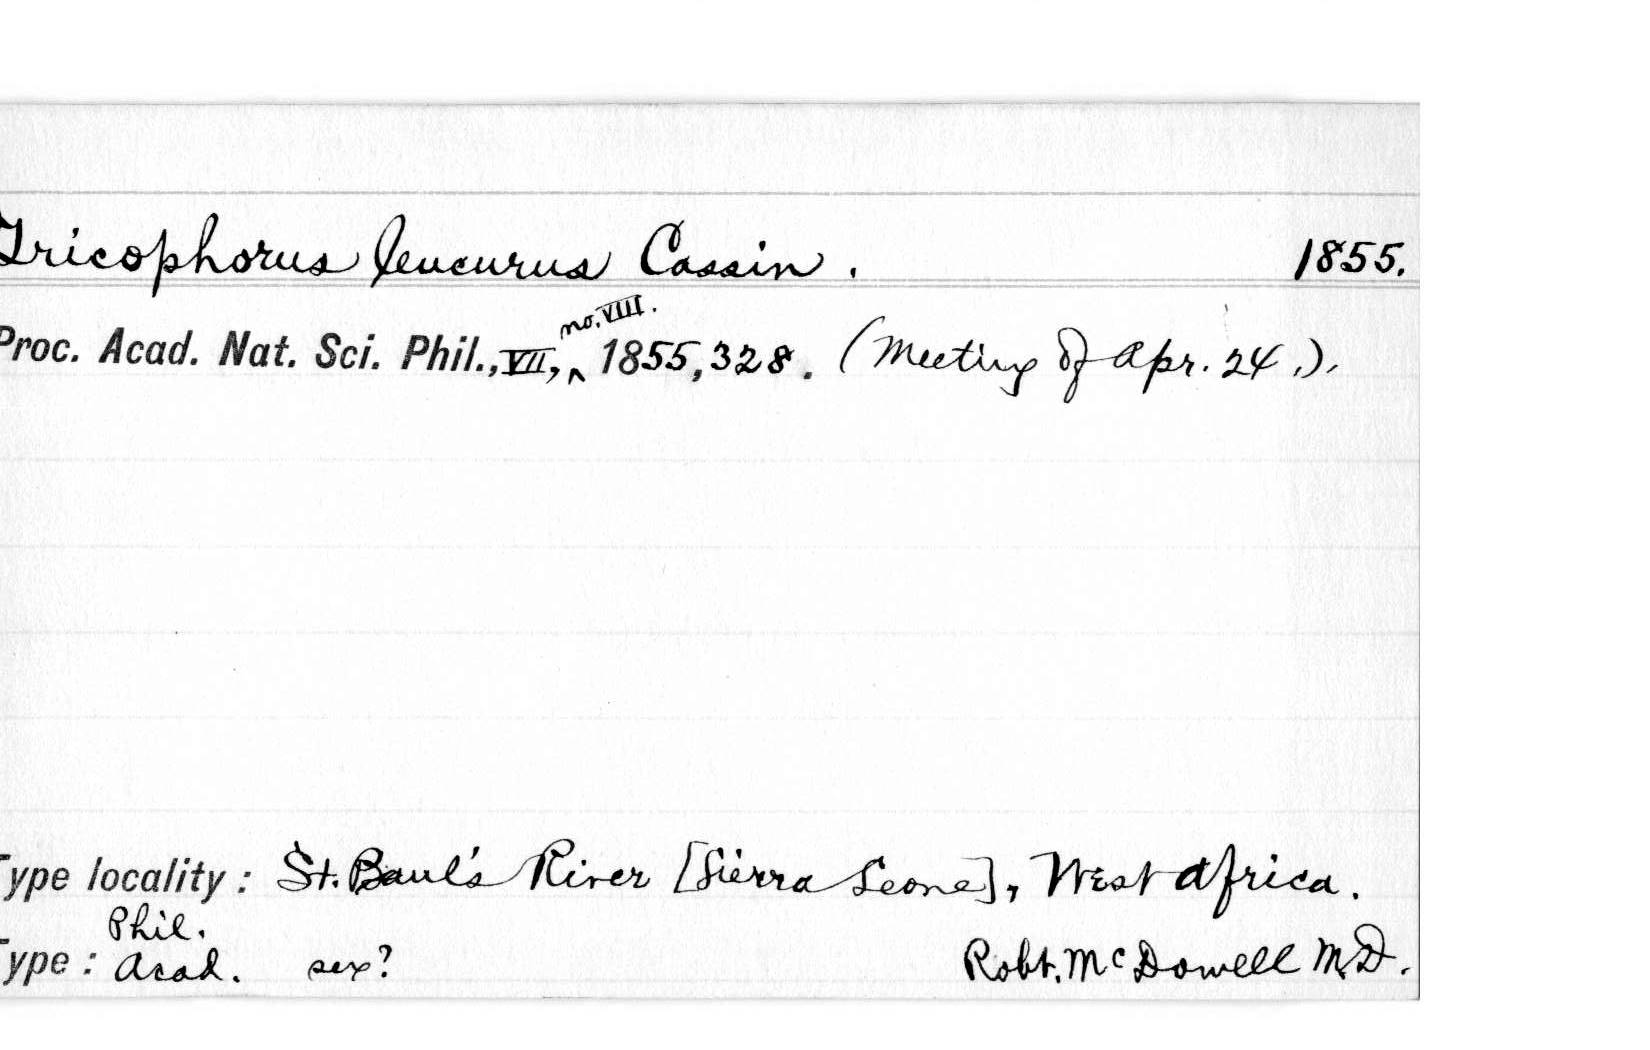 Tricophorus leucurus Cassin. 1855.
no. VIII.
Proc. Acad. Nat. Sci. Phil., VII, ^ 1855, 328. (Meeting of Apr. 24.).
Type locality: St. Paul's River [Sierra Leone], West Africa.
Phil.
Type: Acad. sex? Robt. McDowell M.D.